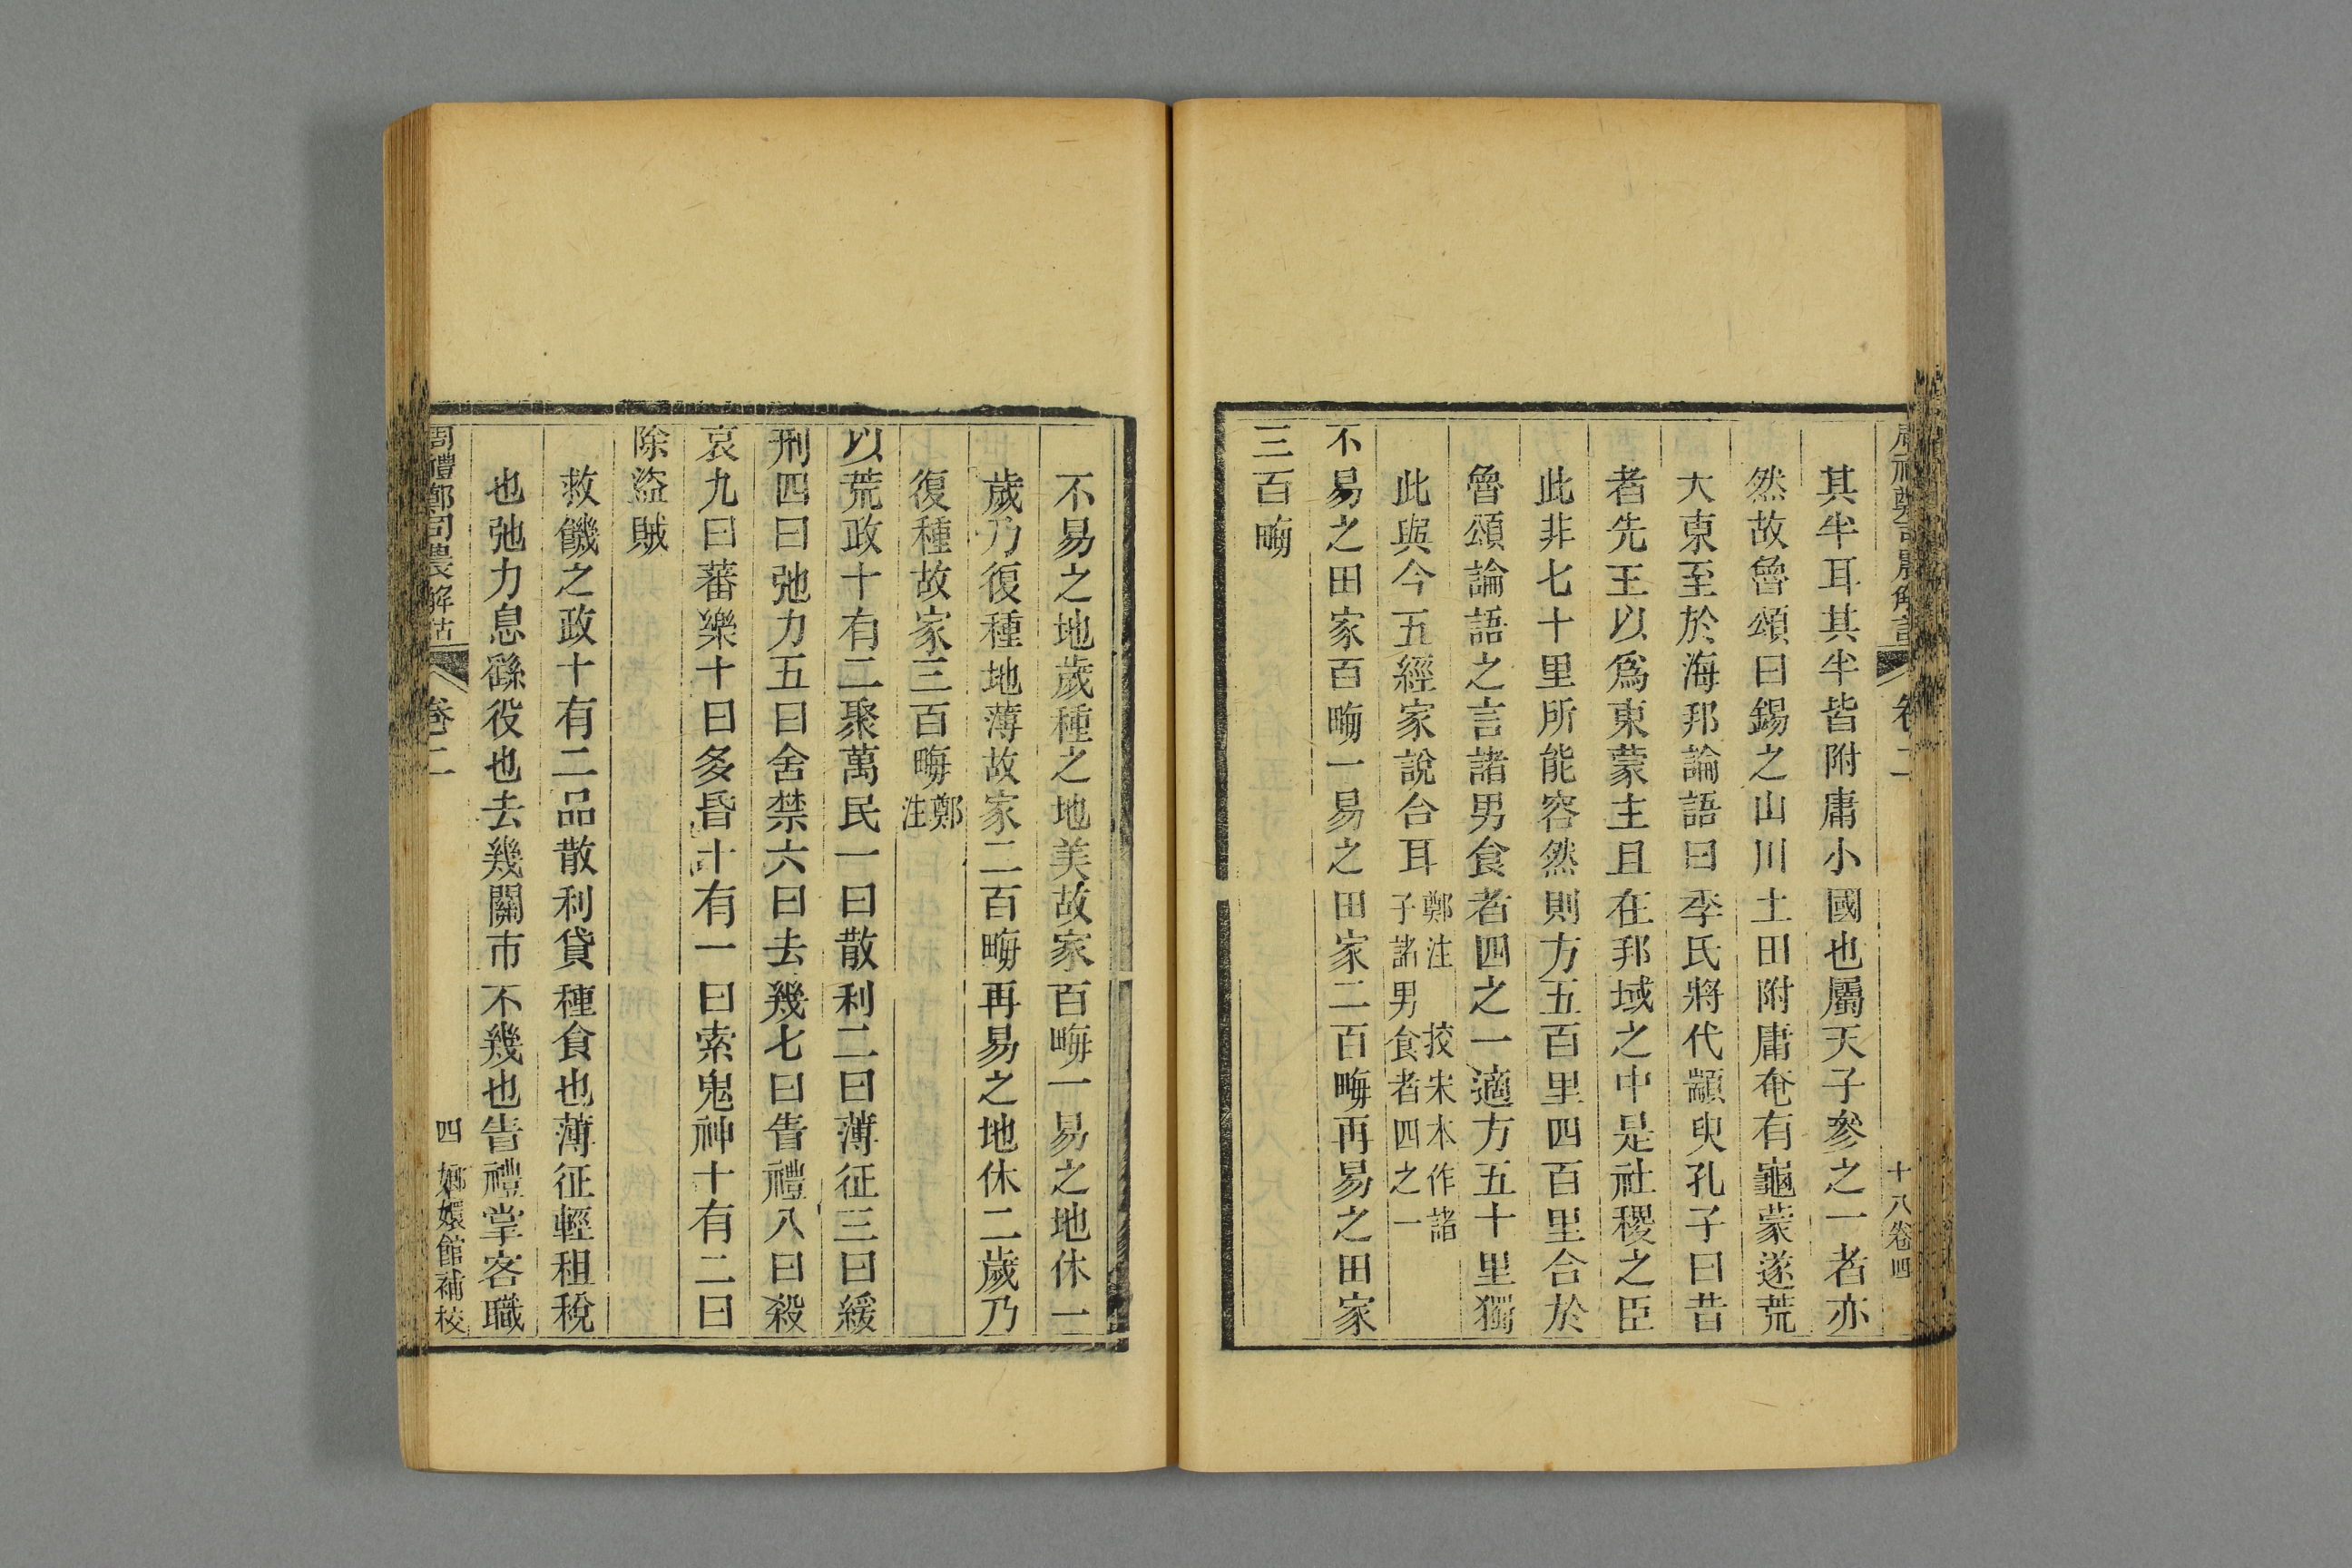 周禮鄭司農解詁
卷二
十八卷四
其半耳其半皆附庸小國也屬天子參之一者亦
然故魯頌曰錫之山川土田附庸奄有龜蒙遂荒
大東至於海邦論語曰季氏將代顓臾孔子曰昔
者先王以爲東蒙主且在邦域之中是社稷之臣
此非七十里所能容然則方五百里四百里合於
魯頌論語之言諸男食者四之一適方五十里獨
此與今五經家說合耳
鄭注 挍宋本作諸
子諸男食者四之一
不易之田家百畮一易之田家二百畮再易之田家
三百畮
不易之地歲種之地美故家百畮一易之地休一
歲乃復種地薄故家二百畮再易之地休二歲乃
復種故家三百畮
鄭
注
以荒政十有二聚萬民一曰散利二曰薄征三曰緩
刑四曰弛力五曰舍禁六曰去幾七曰眚禮八曰殺
哀九曰蕃樂十曰多昏十有一曰索鬼神十有二曰
除盜賊
救饑之政十有二品散利貸種食也薄征輕租稅
也弛力息繇役也去幾關市不幾也眚禮掌客職
周禮鄭司農解詁
卷二
四
嫏嬛館補校